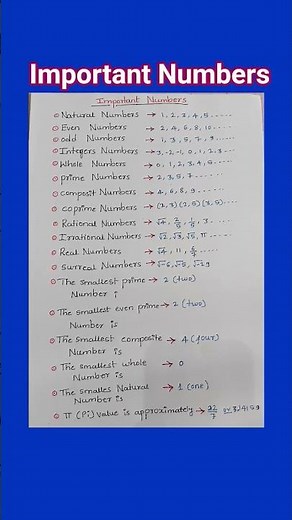 Important Numbers
Important Numbers
Natural Numbers → 1, 2, 3, 4, 5 -----
Even Numbers → 2, 4, 6, 8, 10 ----
odd Numbers → 1, 3, 5, 7, 9 ----
Integers Numbers → -2, -1, 0, 1, 2, 3 --
Whole Numbers → 0, 1, 2, 3, 4, 5 ----
prime Numbers → 2, 3, 5, 7 -----
Composit Numbers → 4, 6, 8, 9 -----
coprime Numbers → (2,3) (2,5) (3,5) ----
Rational Numbers → √4, 3 ----
Irrational Numbers → √2, √3, √5, π ----
Real Numbers → √4, 11,
Surreal Numbers → √-5, √-29
The smallest prime → 2 (two)
Number i
The smallest even prime → 2 (two)
Number is
The smallest composite → 4 (four)
Number is
The smallest whole → 0
Number is
The smalles Natural → 1 (one)
Number is
π (Pi) value is approximately → 22/7 or